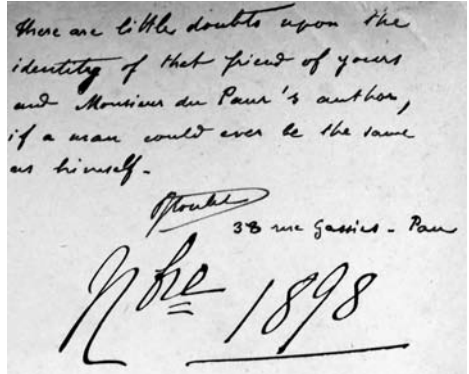 there are little doubts upon the
identity of that friend of yours
and Monsieur du Paur's author,
if a man could ever be the same
as himself.
PJToulet
38 rue Gassies - Pau
Nbre 1898